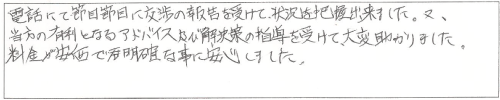 電話にて節目節目に交渉の報告を受けて、状況を把握出来ました。又、
当方の有利となるアドバイス及び解決策の指導を受けて、大変助かりました。
料金が安価で有明確な事に安心しました。